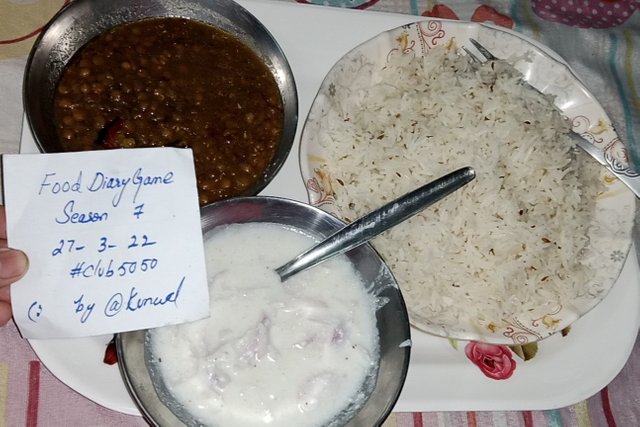 Food Diary Game
Season 7
27-3-22
#club5050
(: by @Kunwal